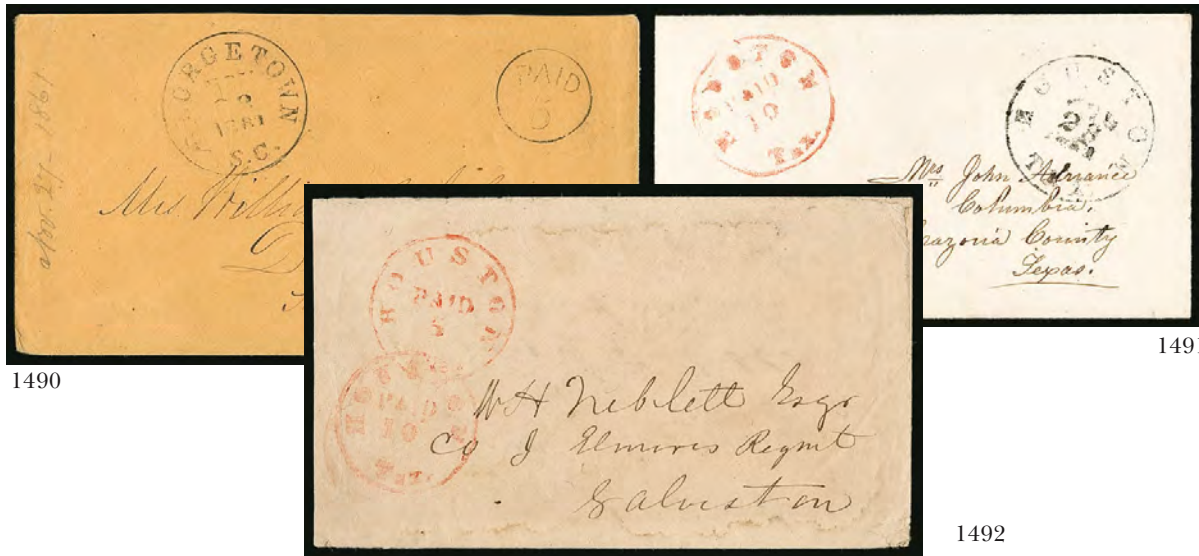 GEORGETOWN
1861
S.C.
PAID
5
Nov. 27 - 1861
Mrs. Willia
1490
HOUSTON
PAID
10
Tex.
HOUSTON
28
Mrs John Adriance
Columbia.
Brazoria County
Texas.
1491
HOUSTON
PAID
5
HOUSTON
PAID
10
Tex.
W H Neblett Esqr
Co I Elmores Regmt
Galveston
1492